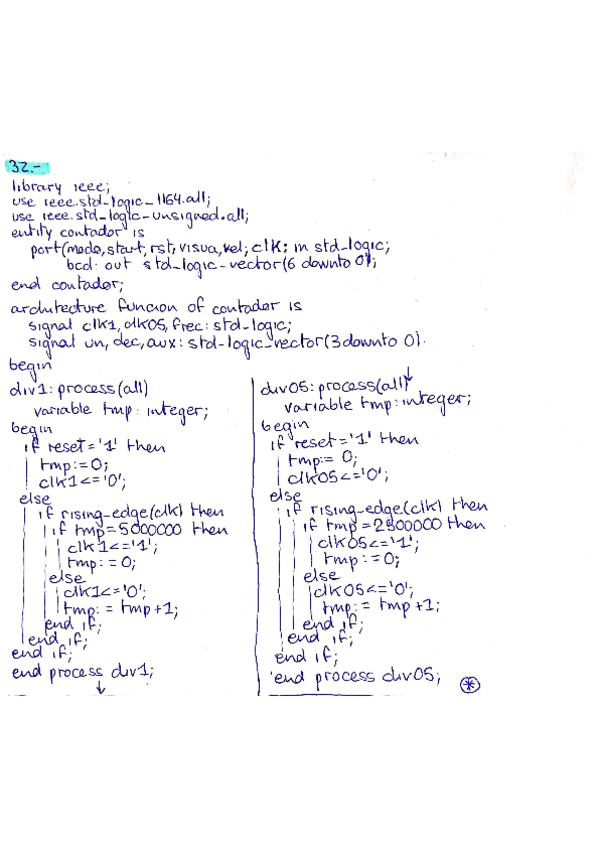 32.-
library ieee;
use ieee.std_logic_1164.all;
use ieee.std_logic_unsigned.all;
entity contador is
port(modo, start, rst, visua, vel, clk: in std_logic;
bcd: out std_logic_vector(6 downto 0);
end contador;
architecture funcion of contador is
signal clk1, clk05, frec: std_logic;
signal un, dec, aux: std_logic_vector(3 downto 0).
begin
div1: process(all)
variable tmp: integer;
begin
if reset='1' then
tmp:=0;
clk1<='0';
else
if rising_edge(clk) then
if tmp=5000000 then
clk1<='1';
tmp:=0;
else
clk1<='0';
tmp:= tmp+1;
end if;
end if;
end if;
end process div1;
↓
↓
div05: process(all)
variable tmp: integer;
begin
if reset='1' then
tmp:= 0;
clk05<='0';
else
if rising_edge(clk) then
if tmp=2500000 then
clk05<='1';
tmp:=0;
else
clk05<='0';
tmp:= tmp+1;
end if;
end if;
end if;
end process div05; *